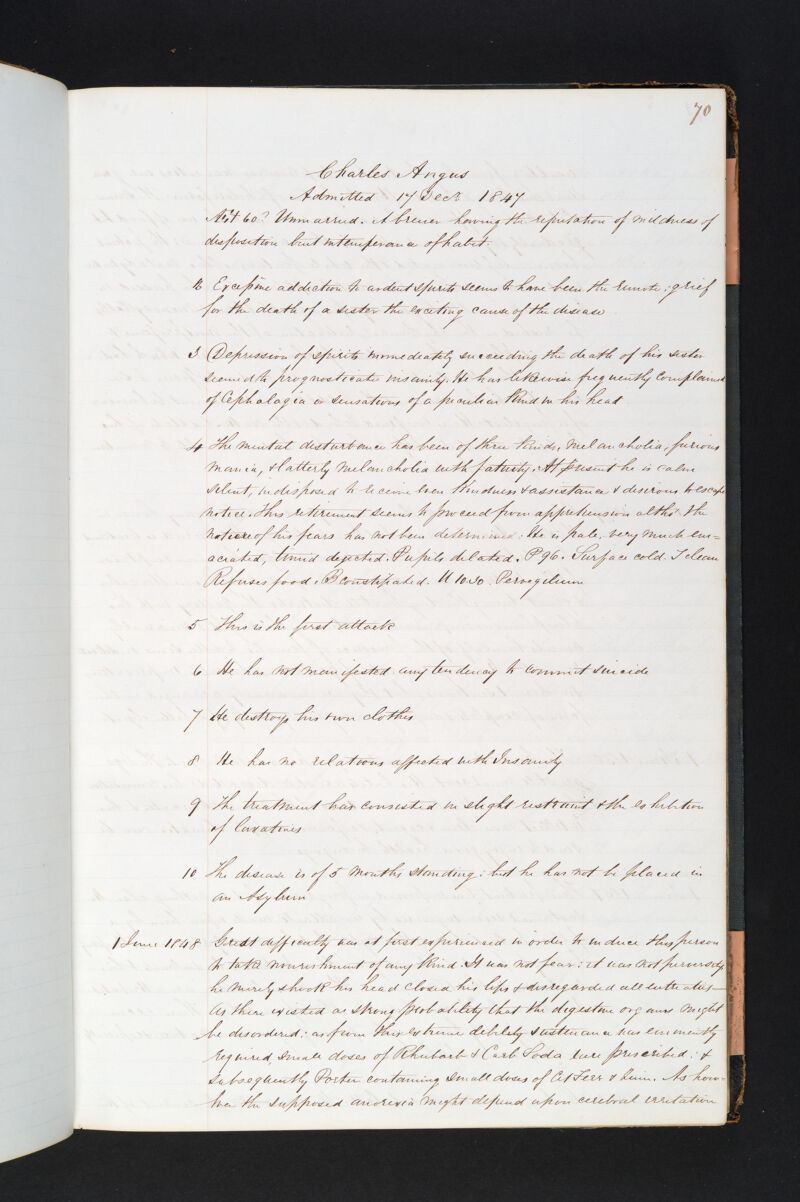 70
Charles Angus
Admitted 17 Decr 1847
Aet 60? Unmarried. A brewer having the reputation of mildness of
disposition but intemperance of habit.
2 Excessive addiction to ardent spirits seems to have been the remote; grief
for the death of a sister the exciting cause of the disease
3 Depression of spirits immediately succeeding the death of his sister
seemed to prognosticate insanity. He has likewise frequently complained
of Cephalagia or sensations of a peculiar kind in his head
4 The mental disturbance has been of three kinds, melancholia, furious
mania, & latterly melancholia with fatuity. At present he is calm
silent, indisposed to receive even kindness & assistance & desirous to escape
notice. This retirement seems to proceed from apprehension altho' the
nature of his fears has not been determined. He is pale, very much em-
aciated, timid dejected. Pupils dilated. P 96. Surface cold. T clean
Refuses food. B constipated. U 10.30. Pervigilium
5 This is the first attack
6 He has not manifested any tendency to commit suicide
7 He destroys his own clothes
8 He has no relations affected with Insanity
9 The treatment has consisted in slight restraint & the exhibition
of laxatives
10 The disease is of 5 months standing: but he has not be placed in
an Asylum
1 June 1848 Great difficulty was at first experienced in order to induce this person
to take nourishment of any kind. It was not fear: it was not perversity
he merely shook his head closed his lips & disregarded all entreaties—
As there existed a strong probability that the digestive organs might
be disordered; as from the extreme debility sustenance was eminently
required, small doses of Rhubarb & Carb Soda were prescribed; &
subsequently Porter containing small doses of Cit Ferr & Quin. As how-
ever the supposed anorexia might depend upon cerebral irritation